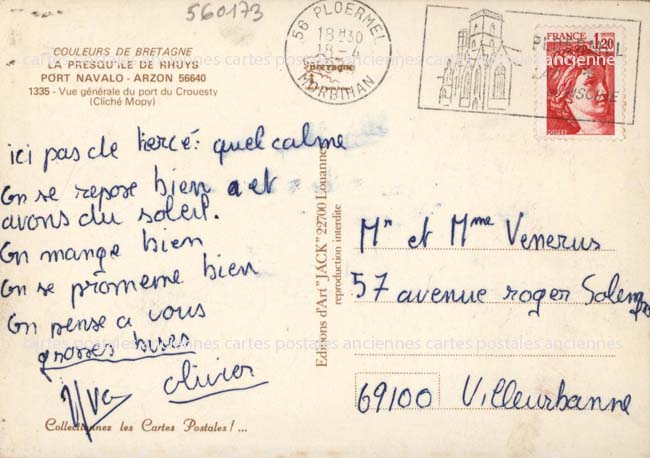 560173
COULEURS DE BRETAGNE
LA PRESQU'ILE DE RHUYS
PORT NAVALO - ARZON 56640
1335 - Vue générale du port du Crouesty
(Cliché Mopy)
56 PLOERMEL
18H30
18-4
MORBIHAN
bretagne
FRANCE
1,20
POSTES
ici pas de tiercé: quel calme
On se repose bien et
avons du soleil.
On mange bien
On se promene bien
On pense a vous
grosses bises
olivier
Mr et Mme Venerus
57 avenue roger Saleng
69100 Villeurbanne
Editions d'Art "JACK" 22700 Louannec
reproduction interdite
Collectionnez les Cartes Postales !...
cartes postales anciennes cartes postales anciennes cartes postales anciennes